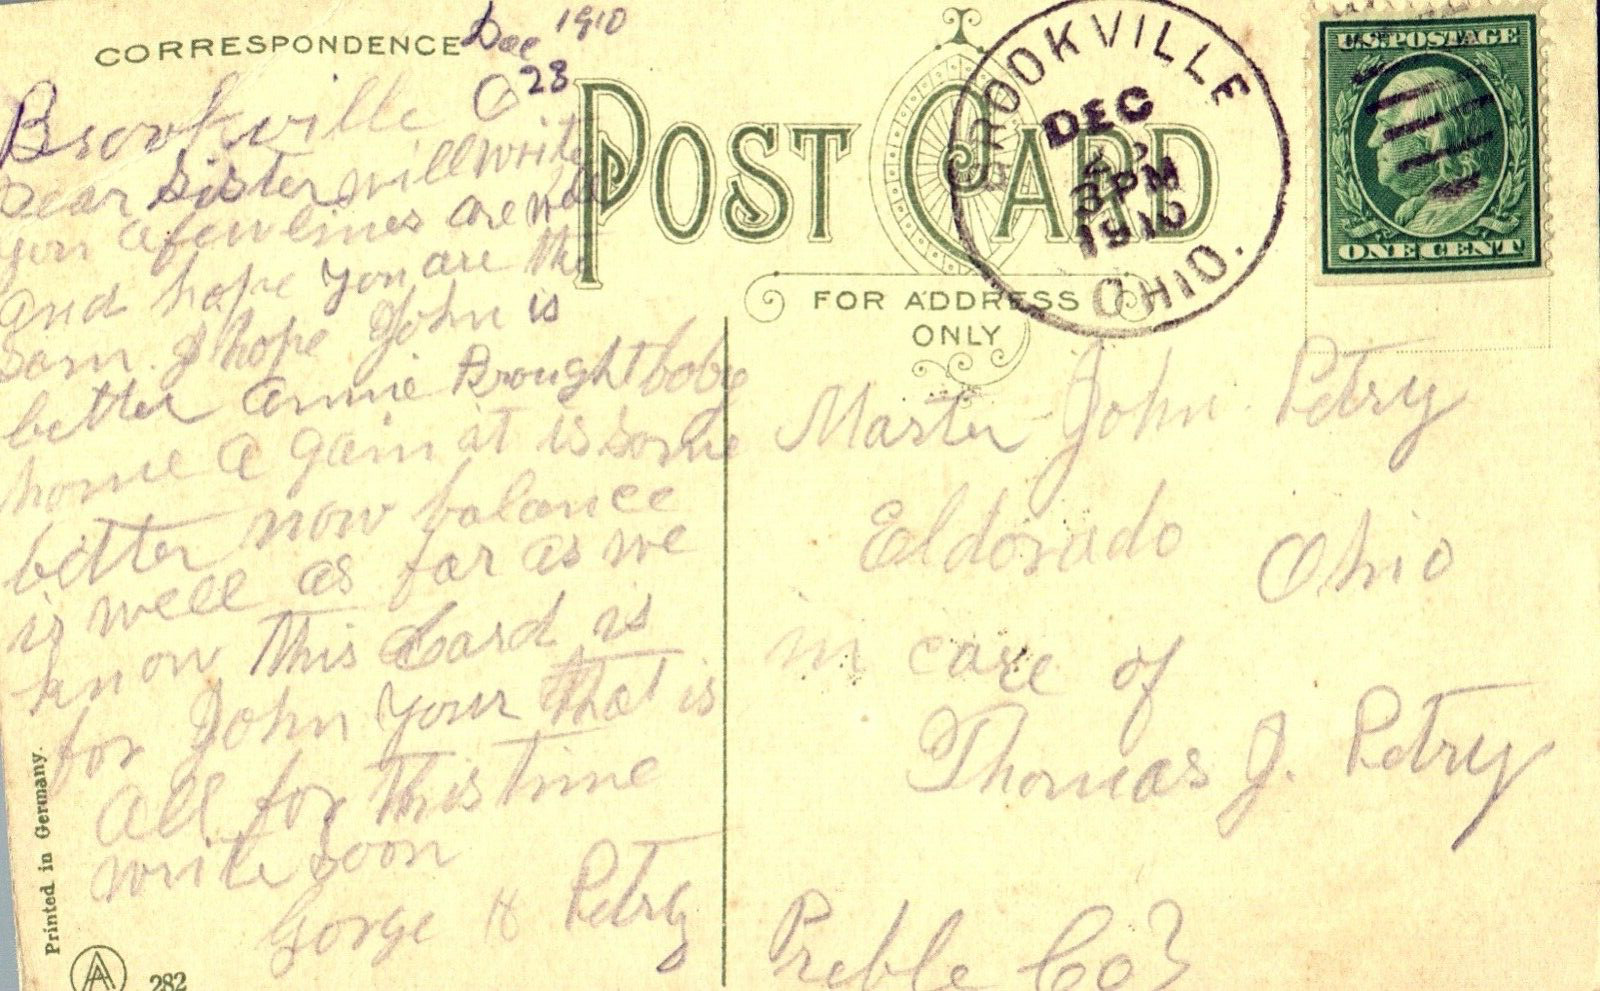 CORRESPONDENCE
Dec 1910
28
Brookville O
Dear Sister will write
you a few lines are well
and hope you are the
Sam. I hope John is
better annie Brought boby
home a gain it is some
better now balance
is well as far as we
know This Card is
for John your That is
all for This time
write Soon
Gorge H Petry
Printed in Germany.
282
POST CARD
FOR ADDRESS
ONLY
BROOKVILLE
DEC
3PM
1910
OHIO.
U.S. POSTAGE
ONE CENT
Master John Petry
Eldorado Ohio
in care of
Thomas J. Petry
Preble Co